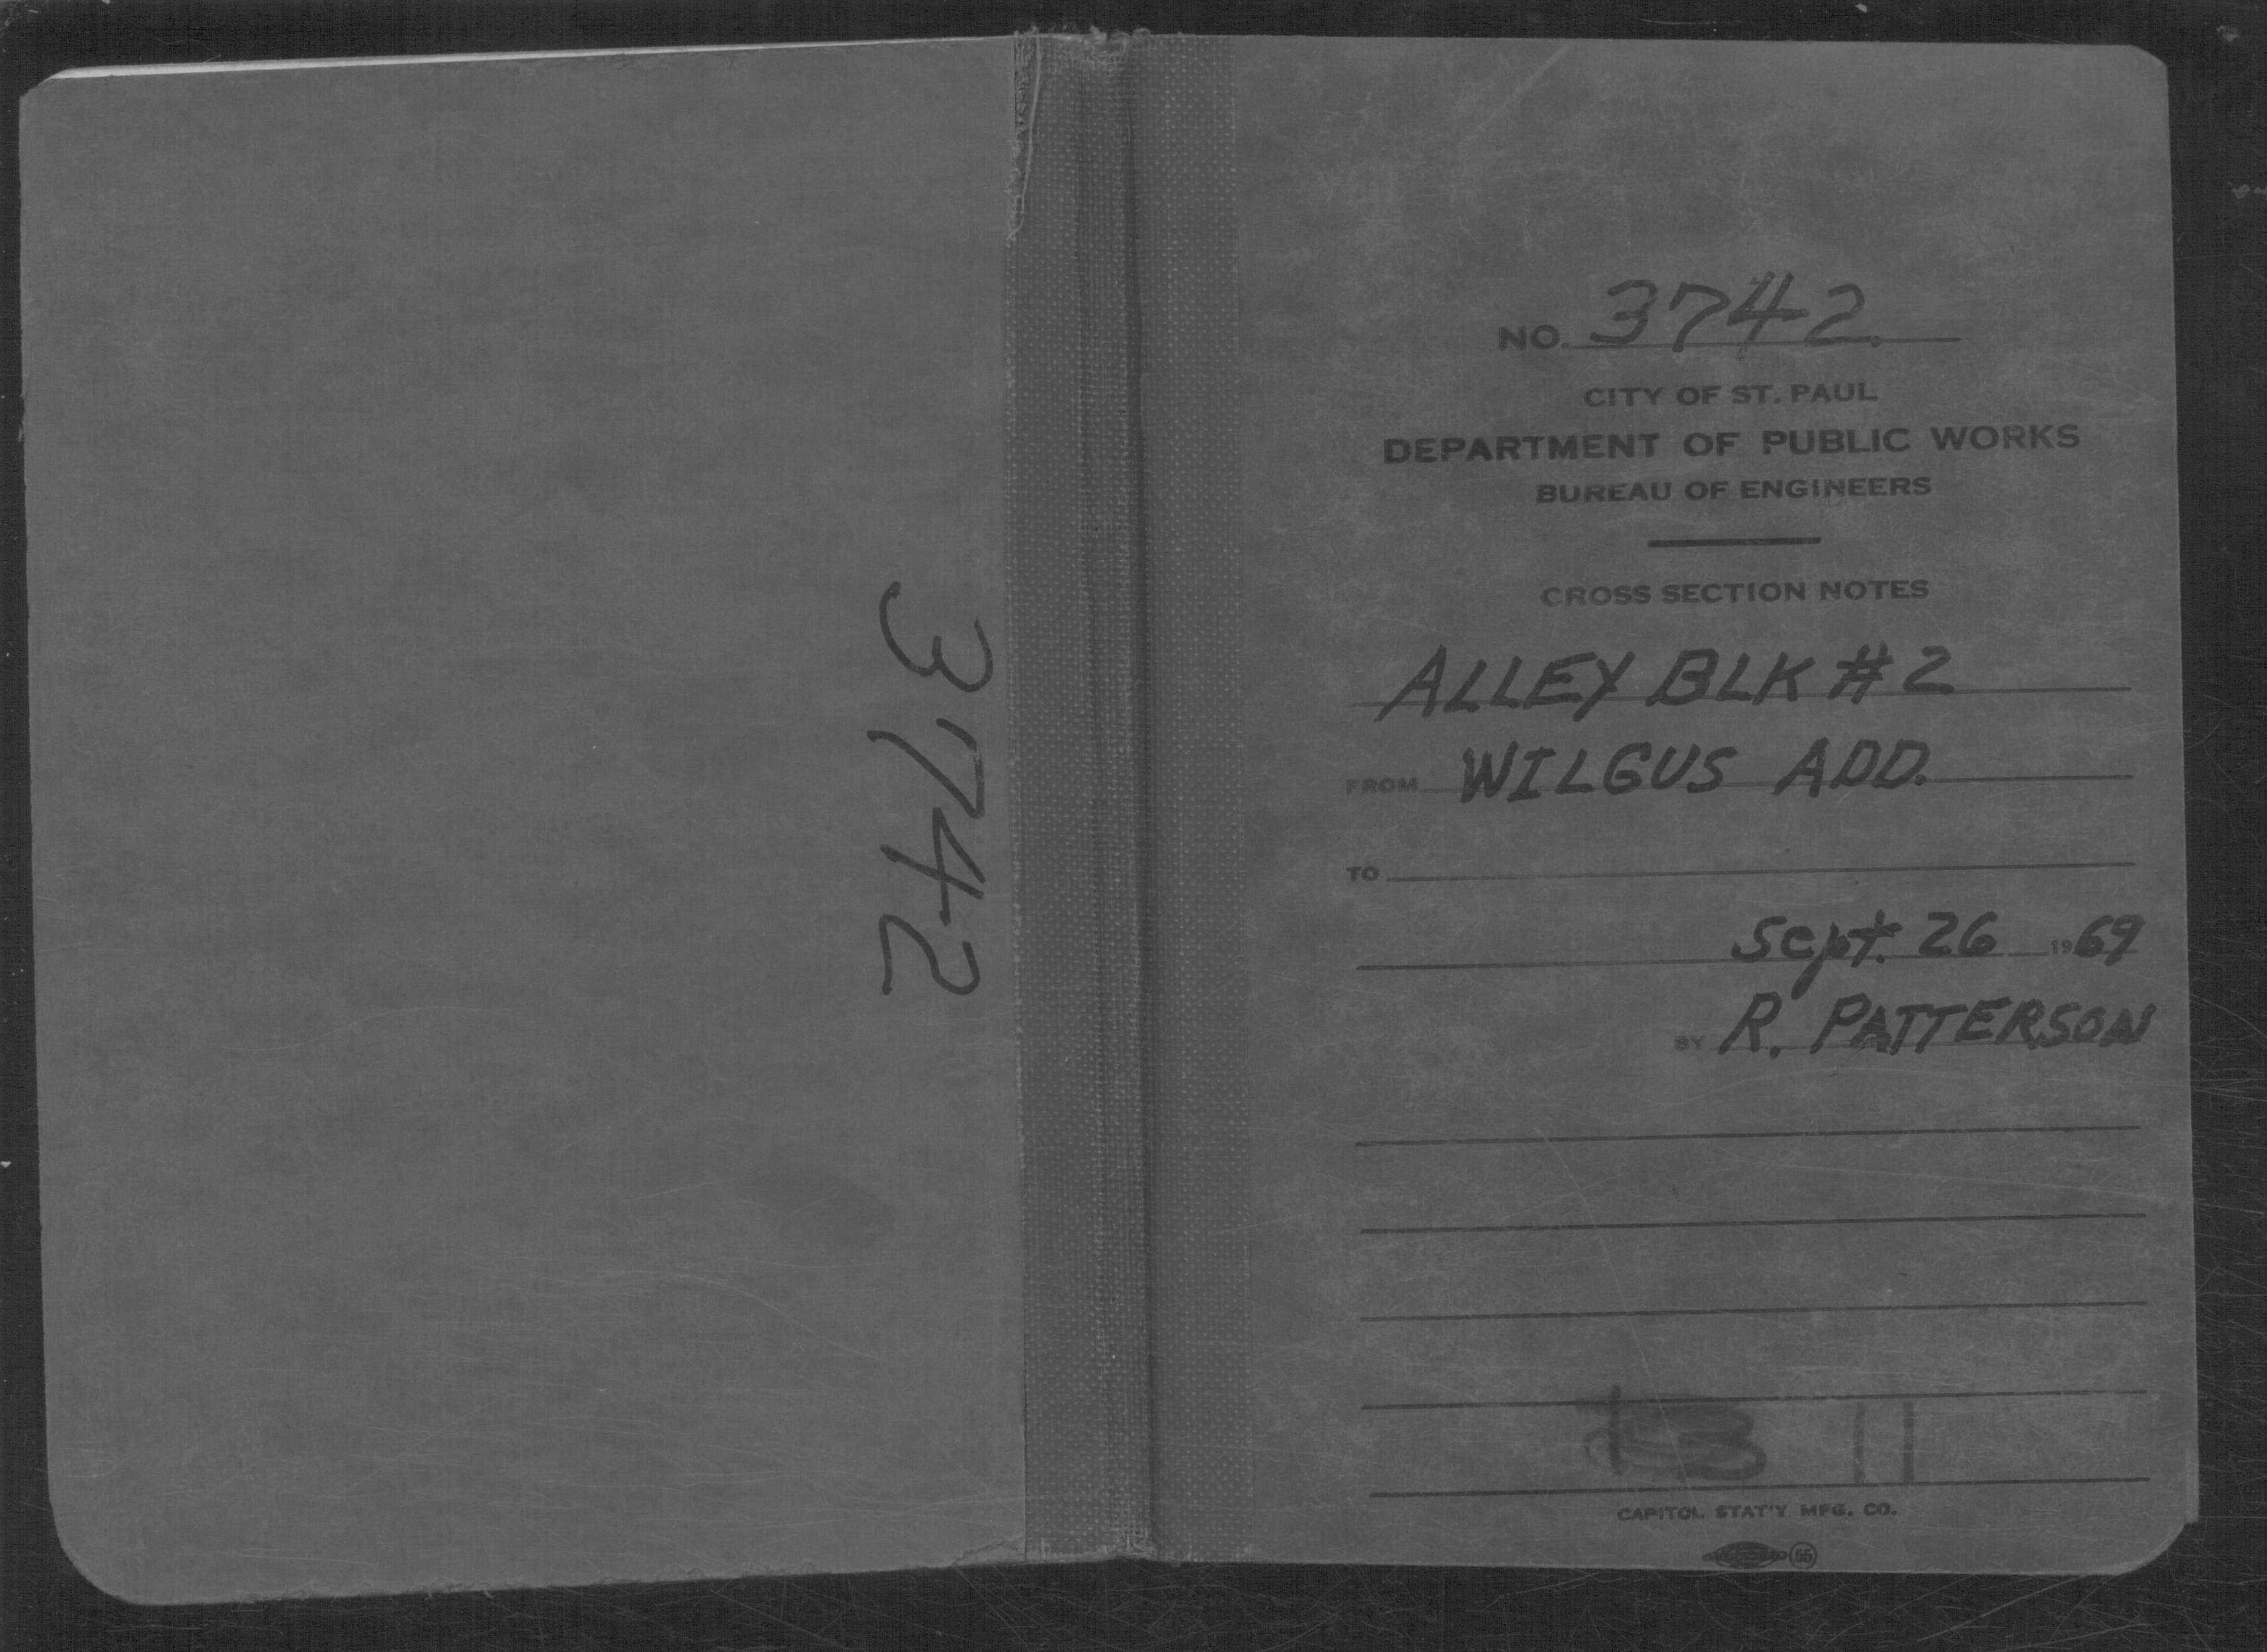 3742
NO. 3742.
CITY OF ST. PAUL
DEPARTMENT OF PUBLIC WORKS
BUREAU OF ENGINEERS
CROSS SECTION NOTES
ALLEY BLK #2
FROM WILGUS ADD.
TO
Sept. 26 1969
BY R. PATTERSON
11
CAPITOL STAT'Y MFG. CO.
55